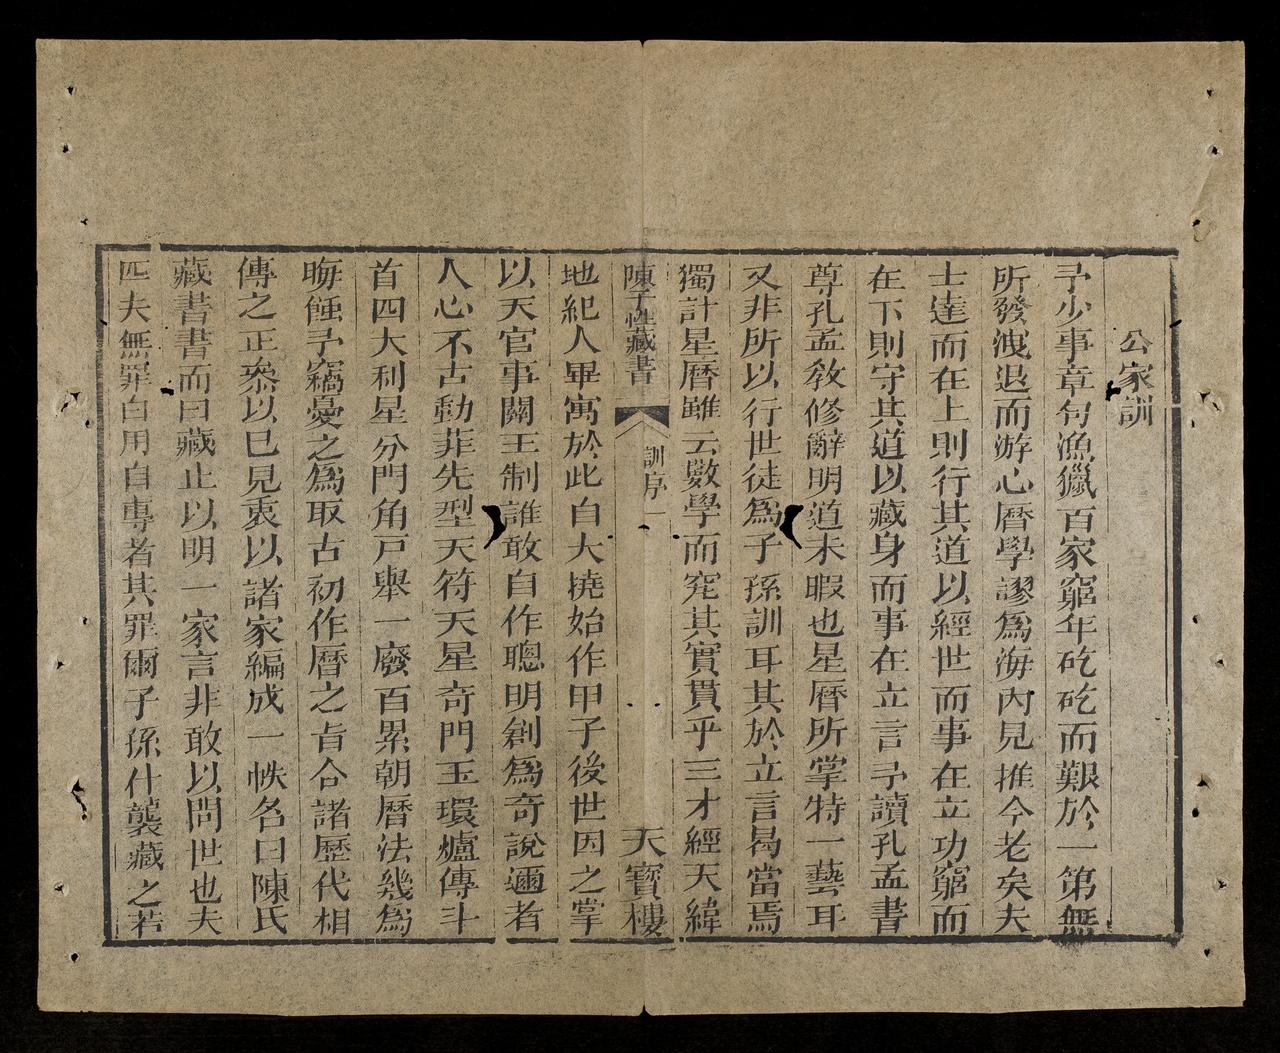 公家訓
予少事章句漁獵百家窮年矻矻而艱於一第無
所發洩退而游心曆學謬爲海內見推今老矣夫
士達而在上則行其道以經世而事在立功窮而
在下則守其道以藏身而事在立言予讀孔孟書
尊孔孟教修辭明道未暇也星曆所掌特一藝耳
又非所以行世徒爲子孫訓耳其於立言曷當焉
獨計星曆雖云數學而究其實貫乎三才經天緯
陳子性藏書 訓序 一 天寶樓
地紀人畢寓於此自大撓始作甲子後世因之掌
以天官事關王制誰敢自作聰明創爲奇說邇者
人心不古動菲先型天符天星奇門玉環爐傳斗
首四大利星分門角戸舉一廢百累朝曆法幾爲
晦蝕予竊憂之爲取古初作曆之旨合諸歷代相
傳之正叅以巳見裒以諸家編成一帙名曰陳氏
藏書書而曰藏止以明一家言非敢以問世也夫
匹夫無罪自用自專者其罪爾子孫什襲藏之若